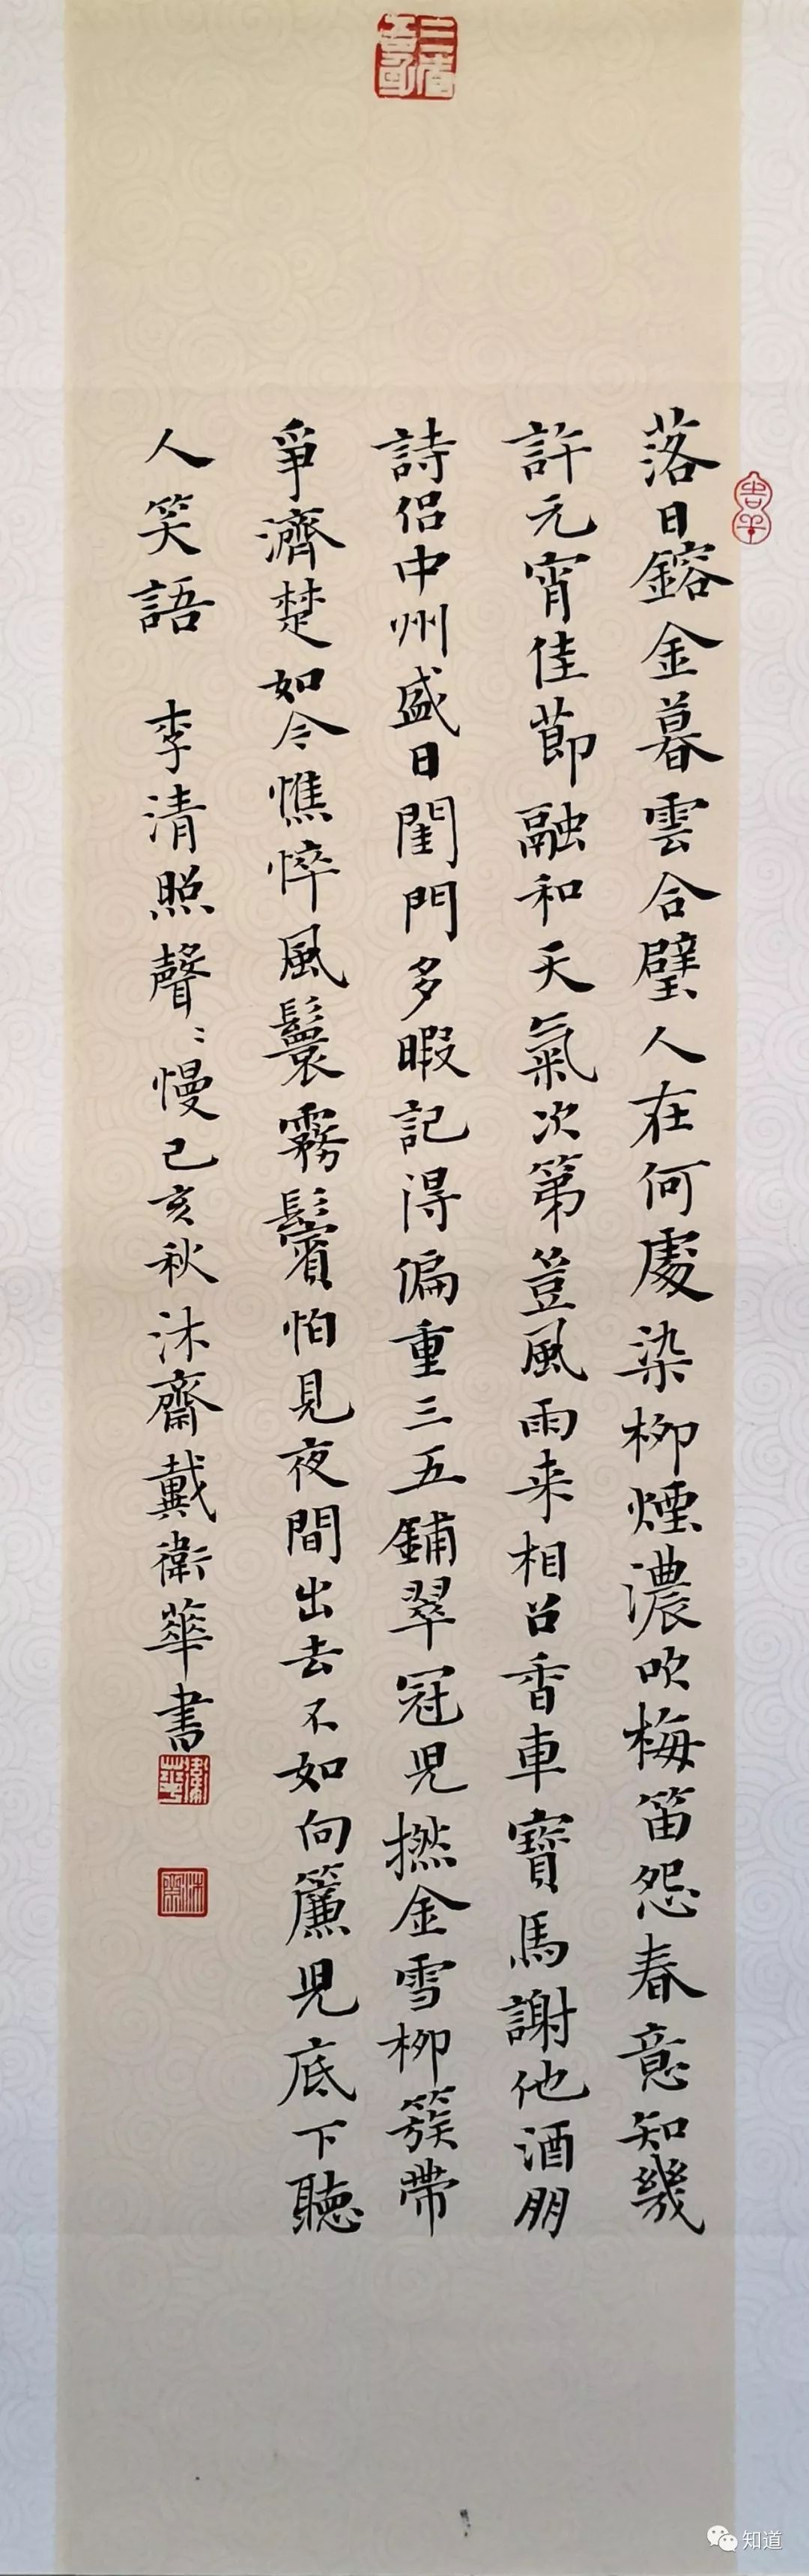 落日鎔金暮雲合璧人在何處染柳煙濃吹梅笛怨春意知幾
許元宵佳節融和天氣次第豈風雨来相召香車寶馬謝他酒朋
詩侣中州盛日閨門多暇記得偏重三五鋪翠冠兒撚金雪柳簇帶
爭濟楚如今憔悴風鬟霧鬢怕見夜間出去不如向簾兒底下聽
人笑語 李清照聲〻慢己亥秋沐齋戴衛華書
知道